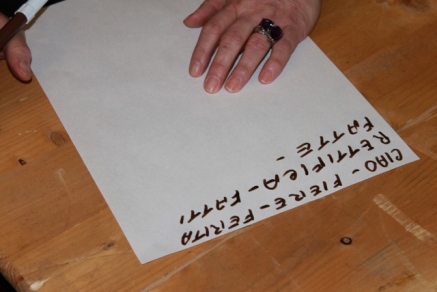 CIAO - FIERE - FERITA
RETTIFICA - FATTI
FATTE -